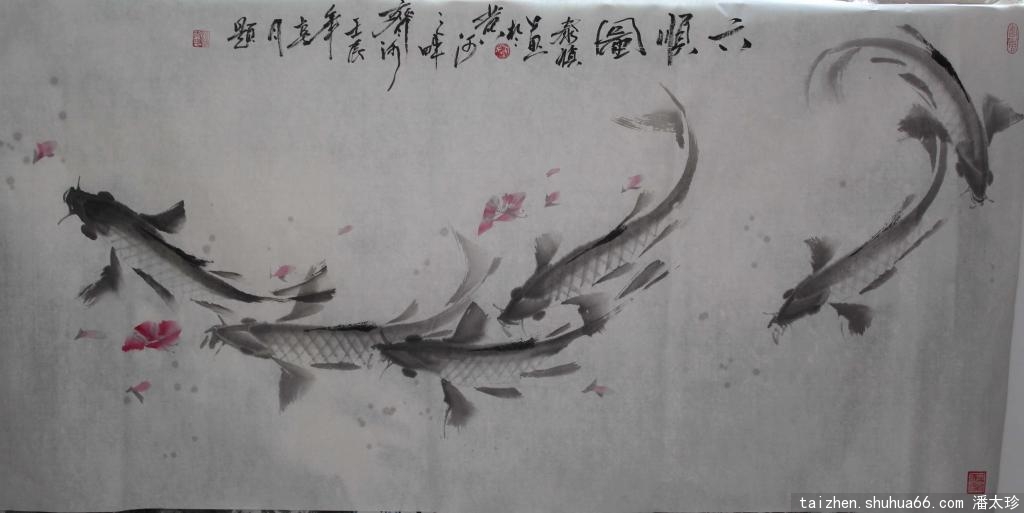 六順圖
於黄河之畔齊河壬辰年月題
taizhen.shuhua66.com 潘太珍